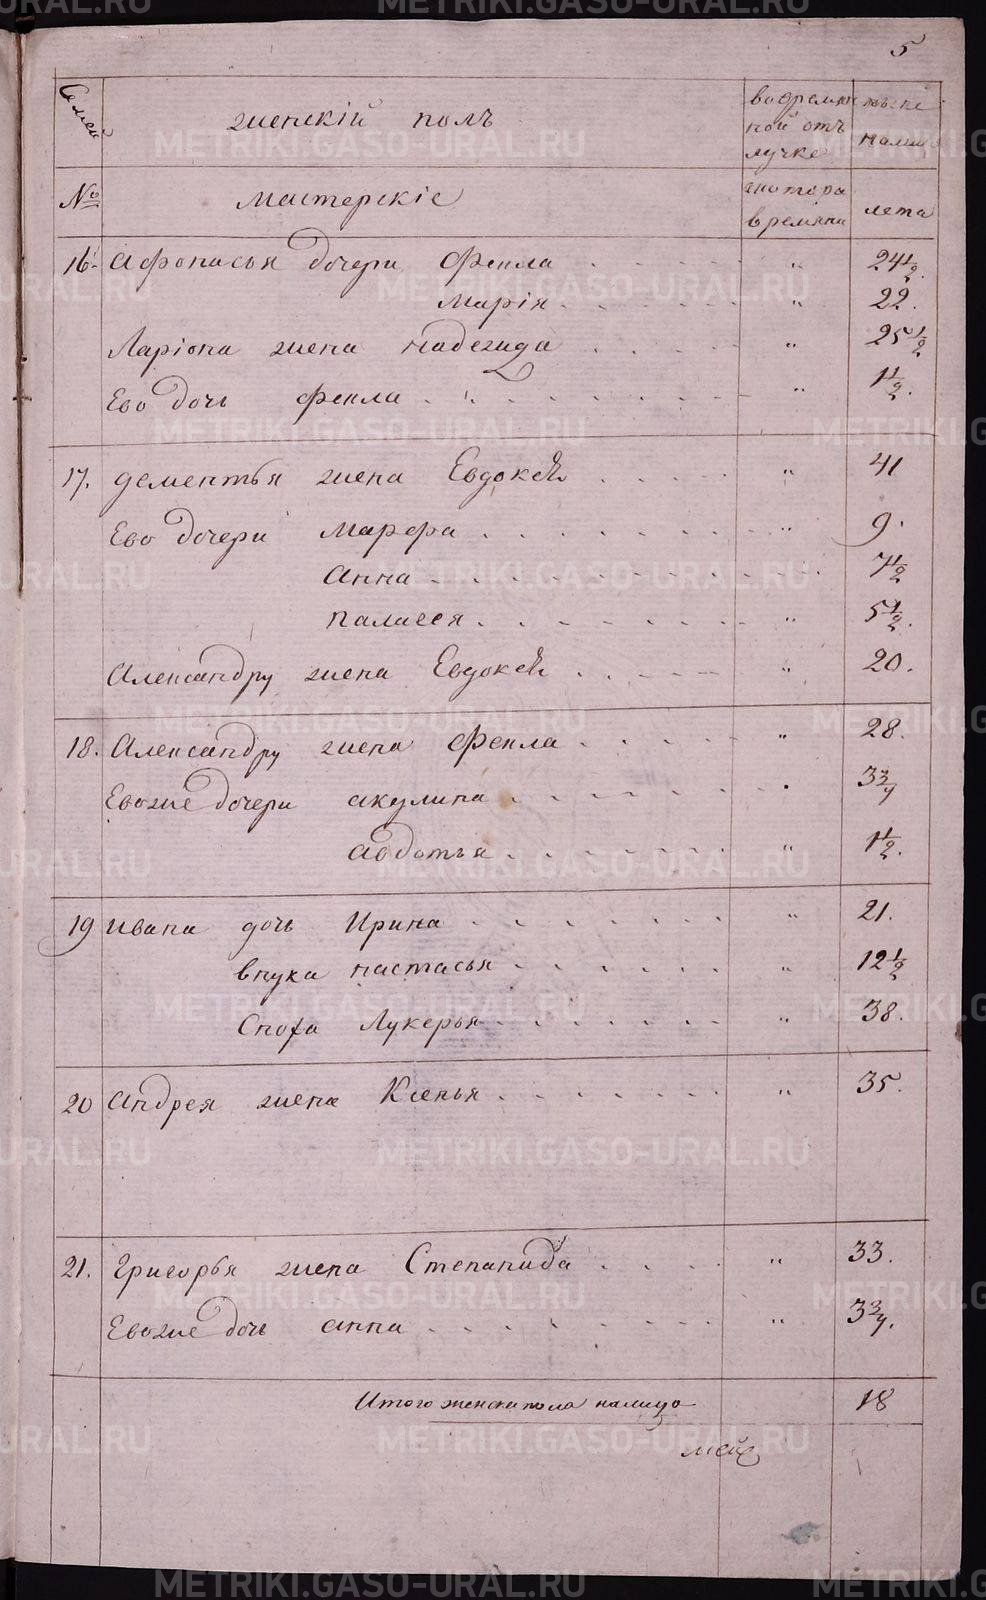 5
Семей
женскій полъ
во времянной отлучке
ныне на лицо
№
мастерскіе
с котора времяни
лета
16. Афонасья дочери Фекла " 24 1/2.
Марія " 22.
Ларіона жена Надежда " 25 1/2
Ево дочь Фекла " 1 1/2.
17. Дементья жена Евдокея " 41
Ево дочери Марфа " 9.
Анна 7 1/2
Паласея " 5 1/2.
Александру жена Евдокея " 20.
18. Александру жена Фекла " 28.
Евоже дочери Акулина " 3 3/4
Авдотья " 1 1/2.
19 Ивана дочь Ирина " 21.
внука Настасья " 12 1/2
Сноха Лукерья " 38.
20 Андрея жена Ксенья " 35.
21. Григорья жена Степанида " 33.
Евоже дочь Анна " 3 3/4.
Итого женска пола налицо 18
METRIKI.GASO-URAL.RU